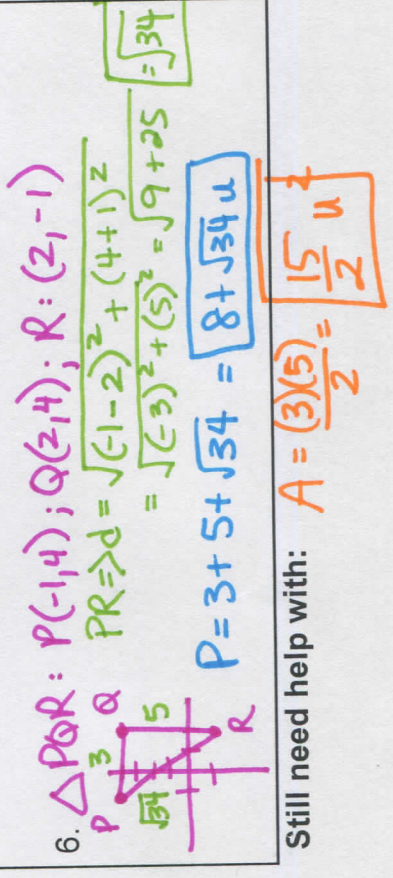 6. △PQR: P(-1,4); Q(2,4); R:(2,-1)
P 3 Q
√34 5
R
PR=>d = √(-1-2)² + (4+1)²
= √(-3)² + (5)² = √9+25 = √34
P = 3 + 5 + √34 = 8 + √34 u
Still need help with:
A = (3)(5)/2 = 15/2 u²